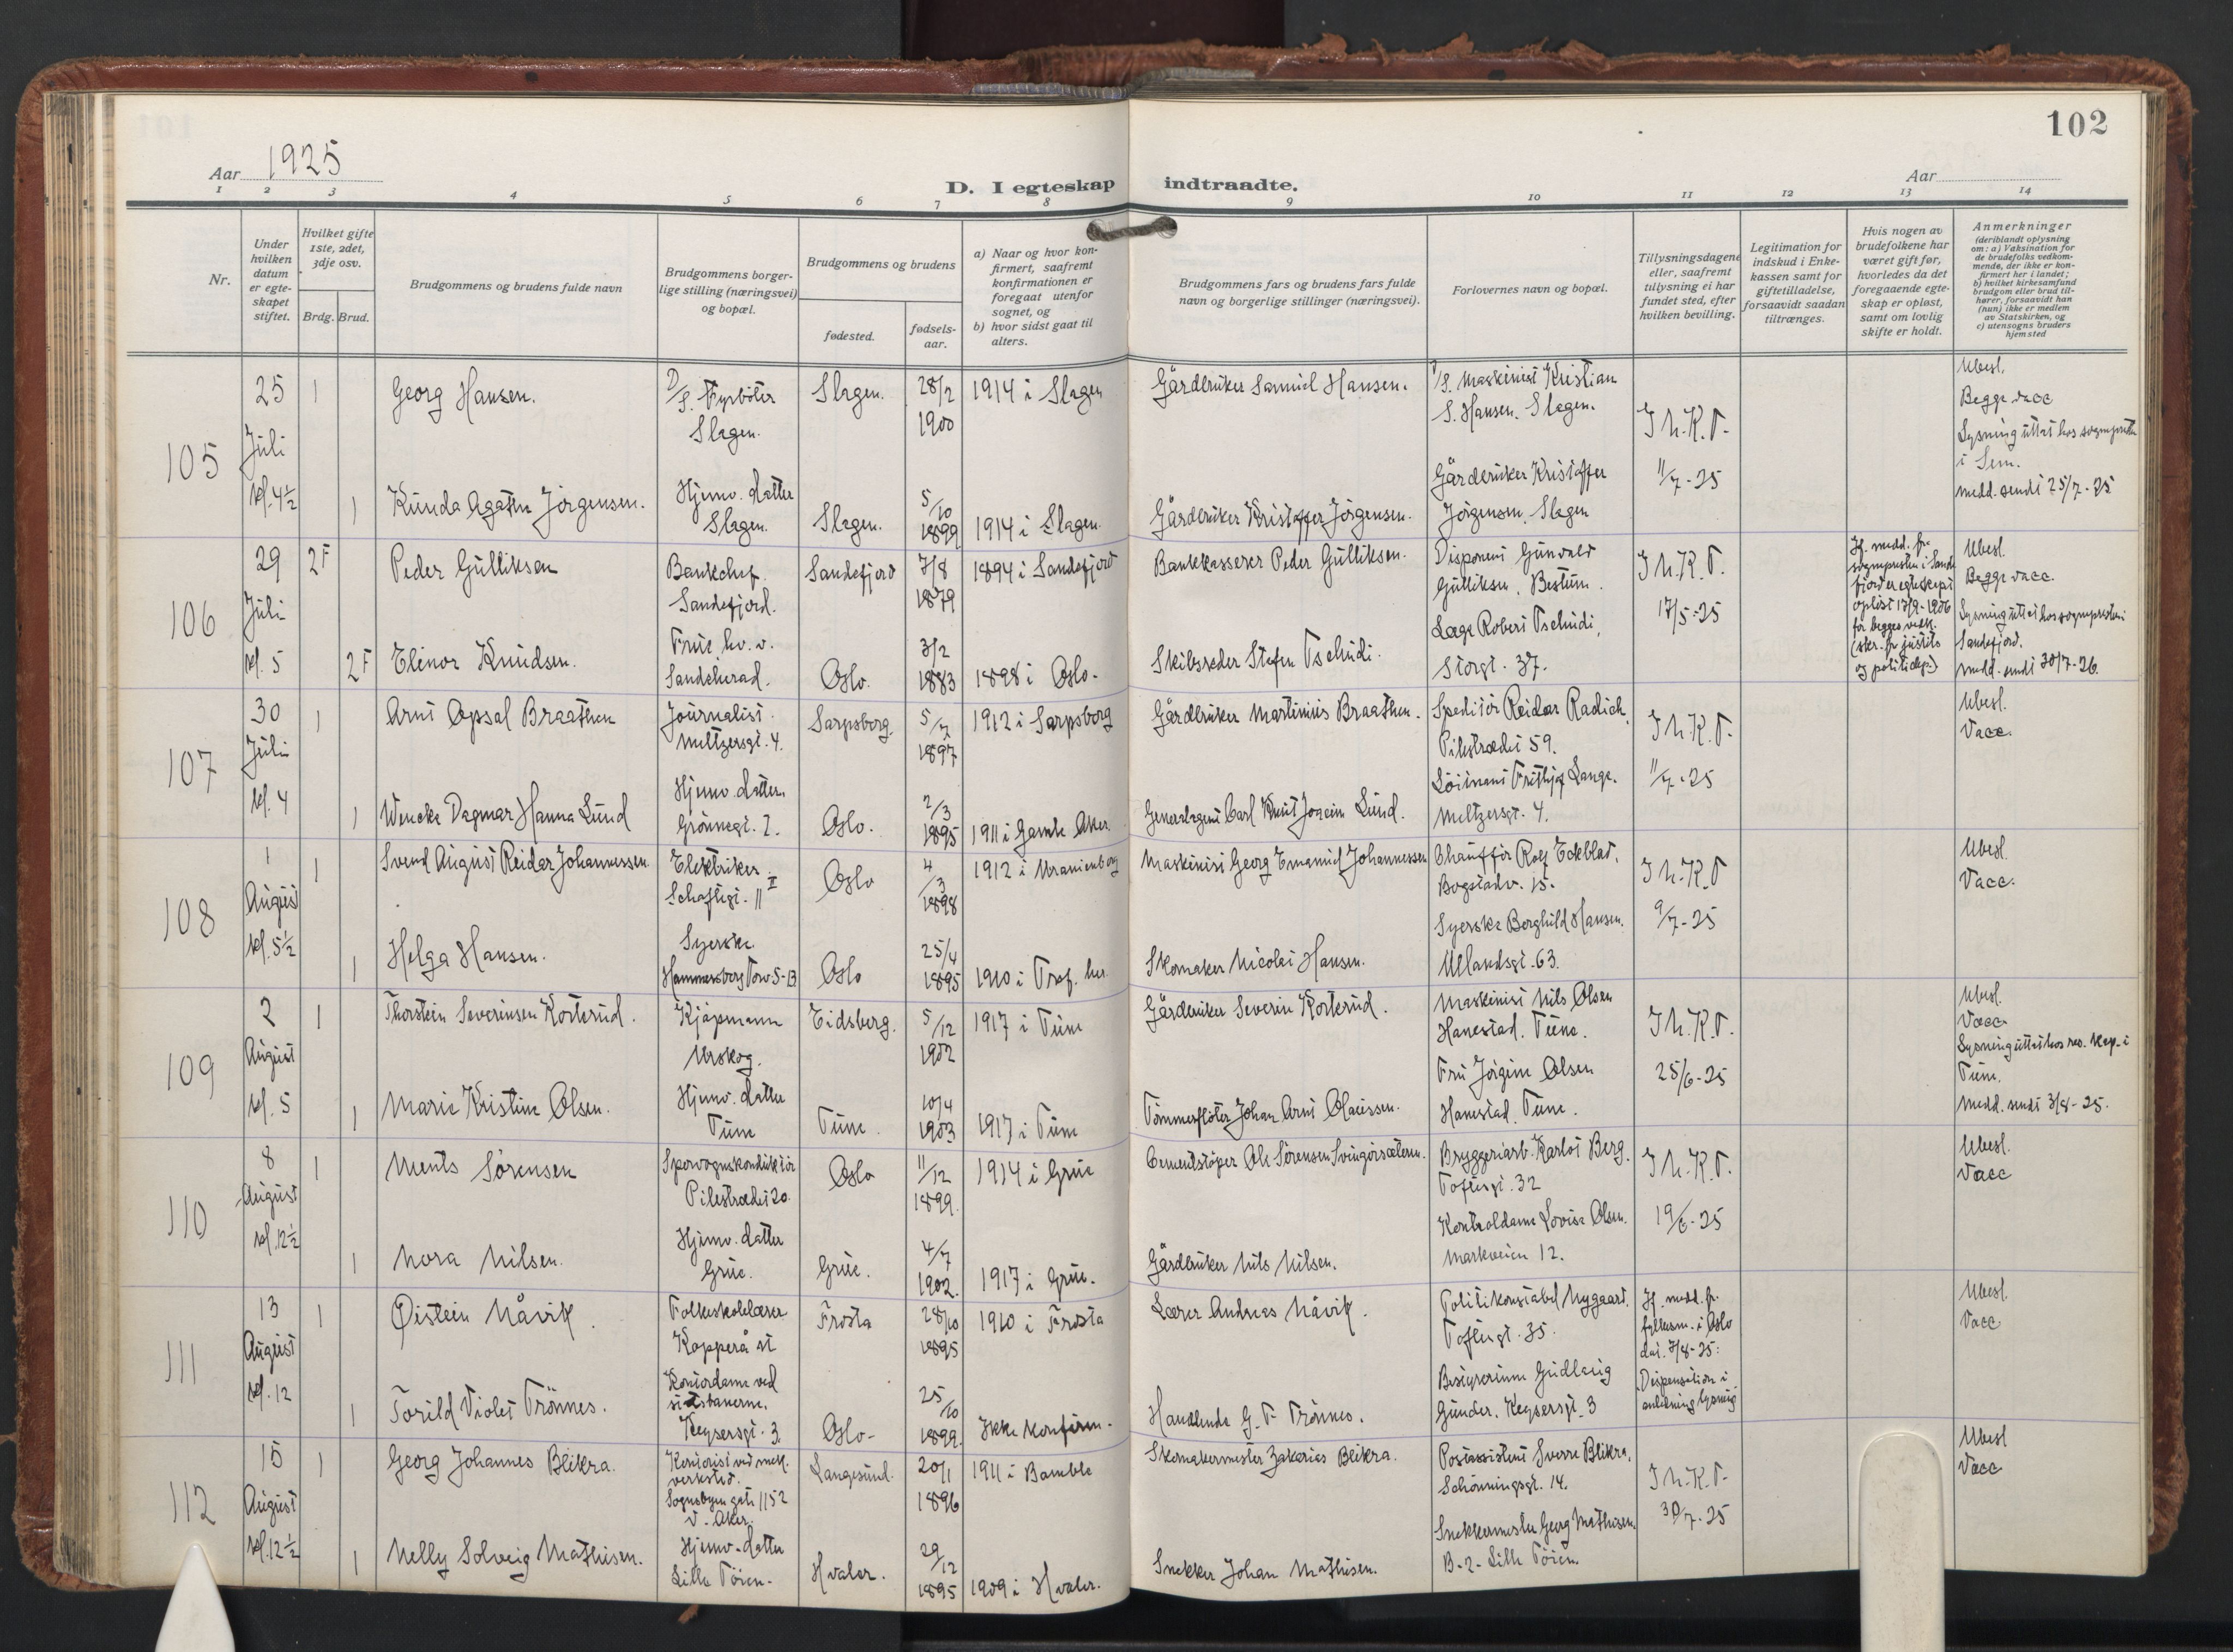 102
Aar 1925
D. I egteskap indtraadte.
Aar
1 2 3 4 5 6 7 8 9 10 11 12 13 14
Nr.
Under hvilken datum er egteskapet stiftet.
Hvilket gifte 1ste, 2det, 3dje osv.
Brdg. Brud.
Brudgommens og brudens fulde navn
Brudgommens borgerlige stilling (næringsvei) og bopæl.
Brudgommens og brudens
fødested.
fødselsaar.
a) Naar og hvor konfirmert, saafremt konfirmationen er foregaat utenfor sognet, og
b) hvor sidst gaat til alters.
Brudgommens fars og brudens fars fulde navn og borgerlige stillinger (næringsvei).
Forlovernes navn og bopæl.
Tillysningsdagene eller, saafremt tillysning ei har fundet sted, efter hvilken bevilling.
Legitimation for indskud i Enkekassen samt for giftetilladelse, forsaavidt saadan tiltrænges.
Hvis nogen av brudefolkene har været gift før, hvorledes da det foregaaende egteskap er opløst, samt om lovlig skifte er holdt.
Anmerkninger
(deriblandt oplysning om: a) Vaksination for de brudefolks vedkommende, der ikke er konfirmert her i landet; b) hvilket kirkesamfund brudgom eller brud tilhører, forsaavidt han (hun) ikke er medlem av Statskirken, og c) utensogns bruders hjemsted
105
25 Juli kl. 4½
1
Georg Hansen.
D/S. Fyrbøter Slagen.
Slagen.
28/2 1900
1914 i Slagen
Gårdbruker Samuel Hansen.
D/S. Maskinist Kristian S. Hansen. Slagen.
I h. K. T. 11/7-25
Ubesl.
Begge vacc
Lysning uttat hos sogneprsten i Sem.
medd. sendt 25/7-25
1
Kunda Agathe Jörgensen.
Hjemv. datter Slagen.
Slagen.
5/10 1899
1914 i Slagen.
Gårdbruker Kristoffer Jörgensen.
Gårdbruker Kristoffer Jörgensen. Slagen
106
29 Juli kl. 5
2 F
Peder Gulliksen
Bankchef. Sandefjord.
Sandefjord
7/8 1879
1894 i Sandefjord
Bankkasserer Peder Gulliksen.
Disponent Gunvald Gulliksen, Bestum.
I h. K. T. 17/5-25
If. medd. fr. sognepresten i Sandefjord er egteskapet opløst 17/9-1906 for begges vedk. (skr. fr. justits og politidep.)
Ubesl.
Begge vacc.
Lysning uttat hos sognepresten i Sandefjord.
medd. sendt 30/7-26
2 F
Elinor Knudsen.
Frue, hv. v. Sandeherad.
Oslo.
3/2 1883
1898 i Oslo.
Skibsreder Stefen Tschudi.
Læge Robert Tschudi, Storgt. 37.
107
30 Juli kl. 4
1
Arnt Opsal Braathen
Journalist. Meltzersgt. 4.
Sarpsborg.
5/7 1897
1912 i Sarpsborg
Gårdbruker Martinius Braathen.
Speditör Reidar Radich, Pilestrædet 59.
I h. K. T. 11/7-25
Ubesl.
Vacc.
1
Wencke Dagmar Hanna Lund
Hjemv. datter. Grönnegt. 7.
Oslo.
2/3 1895
1911 i Gamle Aker.
Generalagent Carl Knut Joacim Lund.
Löitnant Frithjof Lange. Meltzersgt. 4.
108
1 August kl. 5½
1
Svend August Reidar Johannessen.
Elektriker. Schaftsgt. 11 II
Oslo
4/3 1898
1912 i Uranienborg
Maskinist Georg Emanuel Johannessen
Chauffør Rolf Eckblad. Bogstadv. 15.
I h. K. T 9/7-25
Ubesl.
Vacc.
1
Helga Hansen.
Syerske. Hammersborg Torv 5-13
Oslo
25/4 1895
1910 i Tref. her.
Skomaker Nicolai Hansen.
Syerske Borghild Hansen. Ullandsgt. 63.
109
2 August kl. 5
1
Thorstein Severinsen Kosterud.
Kjøpmann Urskog.
Eidsberg.
5/12 1902
1917 i Tune
Gårdbruker Severin Kosterud.
Maskinist Nils Olsen Hanestad. Tune.
I h. K. T. 25/6-25
Ubesl.
Vacc
Lysning uttat hos res. kap. i Tune.
Medd. sendt 3/8-25.
1
Marie Kristine Olsen.
Hjemv. datter Tune
Tune.
10/4 1903
1917 i Tune
Tömmerflöter Johan Arnt Olaussen.
Fru Jörgine Olsen Hanestad. Tune.
110
8 August kl. 12½
1
Ments Sörensen
Sporvognskonduktör Pilestrædet 20.
Oslo
11/12 1899.
1914 i Grue
Cementstöper Ole Sörensen Svingörsæteren.
Bryggeriarb. Karlot Berg. Toftesgt. 32
I h. K. T. 19/6-25
Ubesl.
Vacc
1
Nora Nilsen.
Hjemv. datter Grue.
Grue.
4/7 1902.
1917 i Grue.
Gårdbruker Nils Nilsen.
Kontroldame Lovise Olsen. Markveien 12.
111
13 August kl. 12
1
Øistein Måvik.
Folkeskolelærer Kopperå st
Frosta
28/10 1895
1910 i Frosta
Lærer Andreas Måvik.
Politikonstabel Nygaard. Toftesgt. 35.
If. medd. fr. fylkesm. i Oslo dat. 7/8-25: Dispensation i anledning lysning
Ubesl.
Vacc
1
Torild Violet Trönnes.
Kontordame ved statsbanerne. Keysersgt. 3
Oslo-
25/10 1899.
Ikke konfirm.
Handlende G. F. Trönnes.
Bestyrerinne Gudlaug Gunder. Keysersgt. 3
112
15 August kl. 12½
1
Georg Johannes Blikra.
Kontorist ved mek. verksted. Sognsbyen gate 1152 V. Aker.
Langesund.
20/1 1896
1911 i Bamble
Skomakermester Zakarias Blikra.
Postassistent Sverre Blikra. Schönningsgt. 14.
I h. K. T. 30/7-25
Ubesl
Vacc
1
Nelly Solveig Mathisen.
Hjemv. datter Lille Töien.
Hvaler.
29/12 1895
1909 i Hvaler.
Snekker Johan Mathisen.
Snekkermester Georg Mathisen. B-2- Lille Töien.